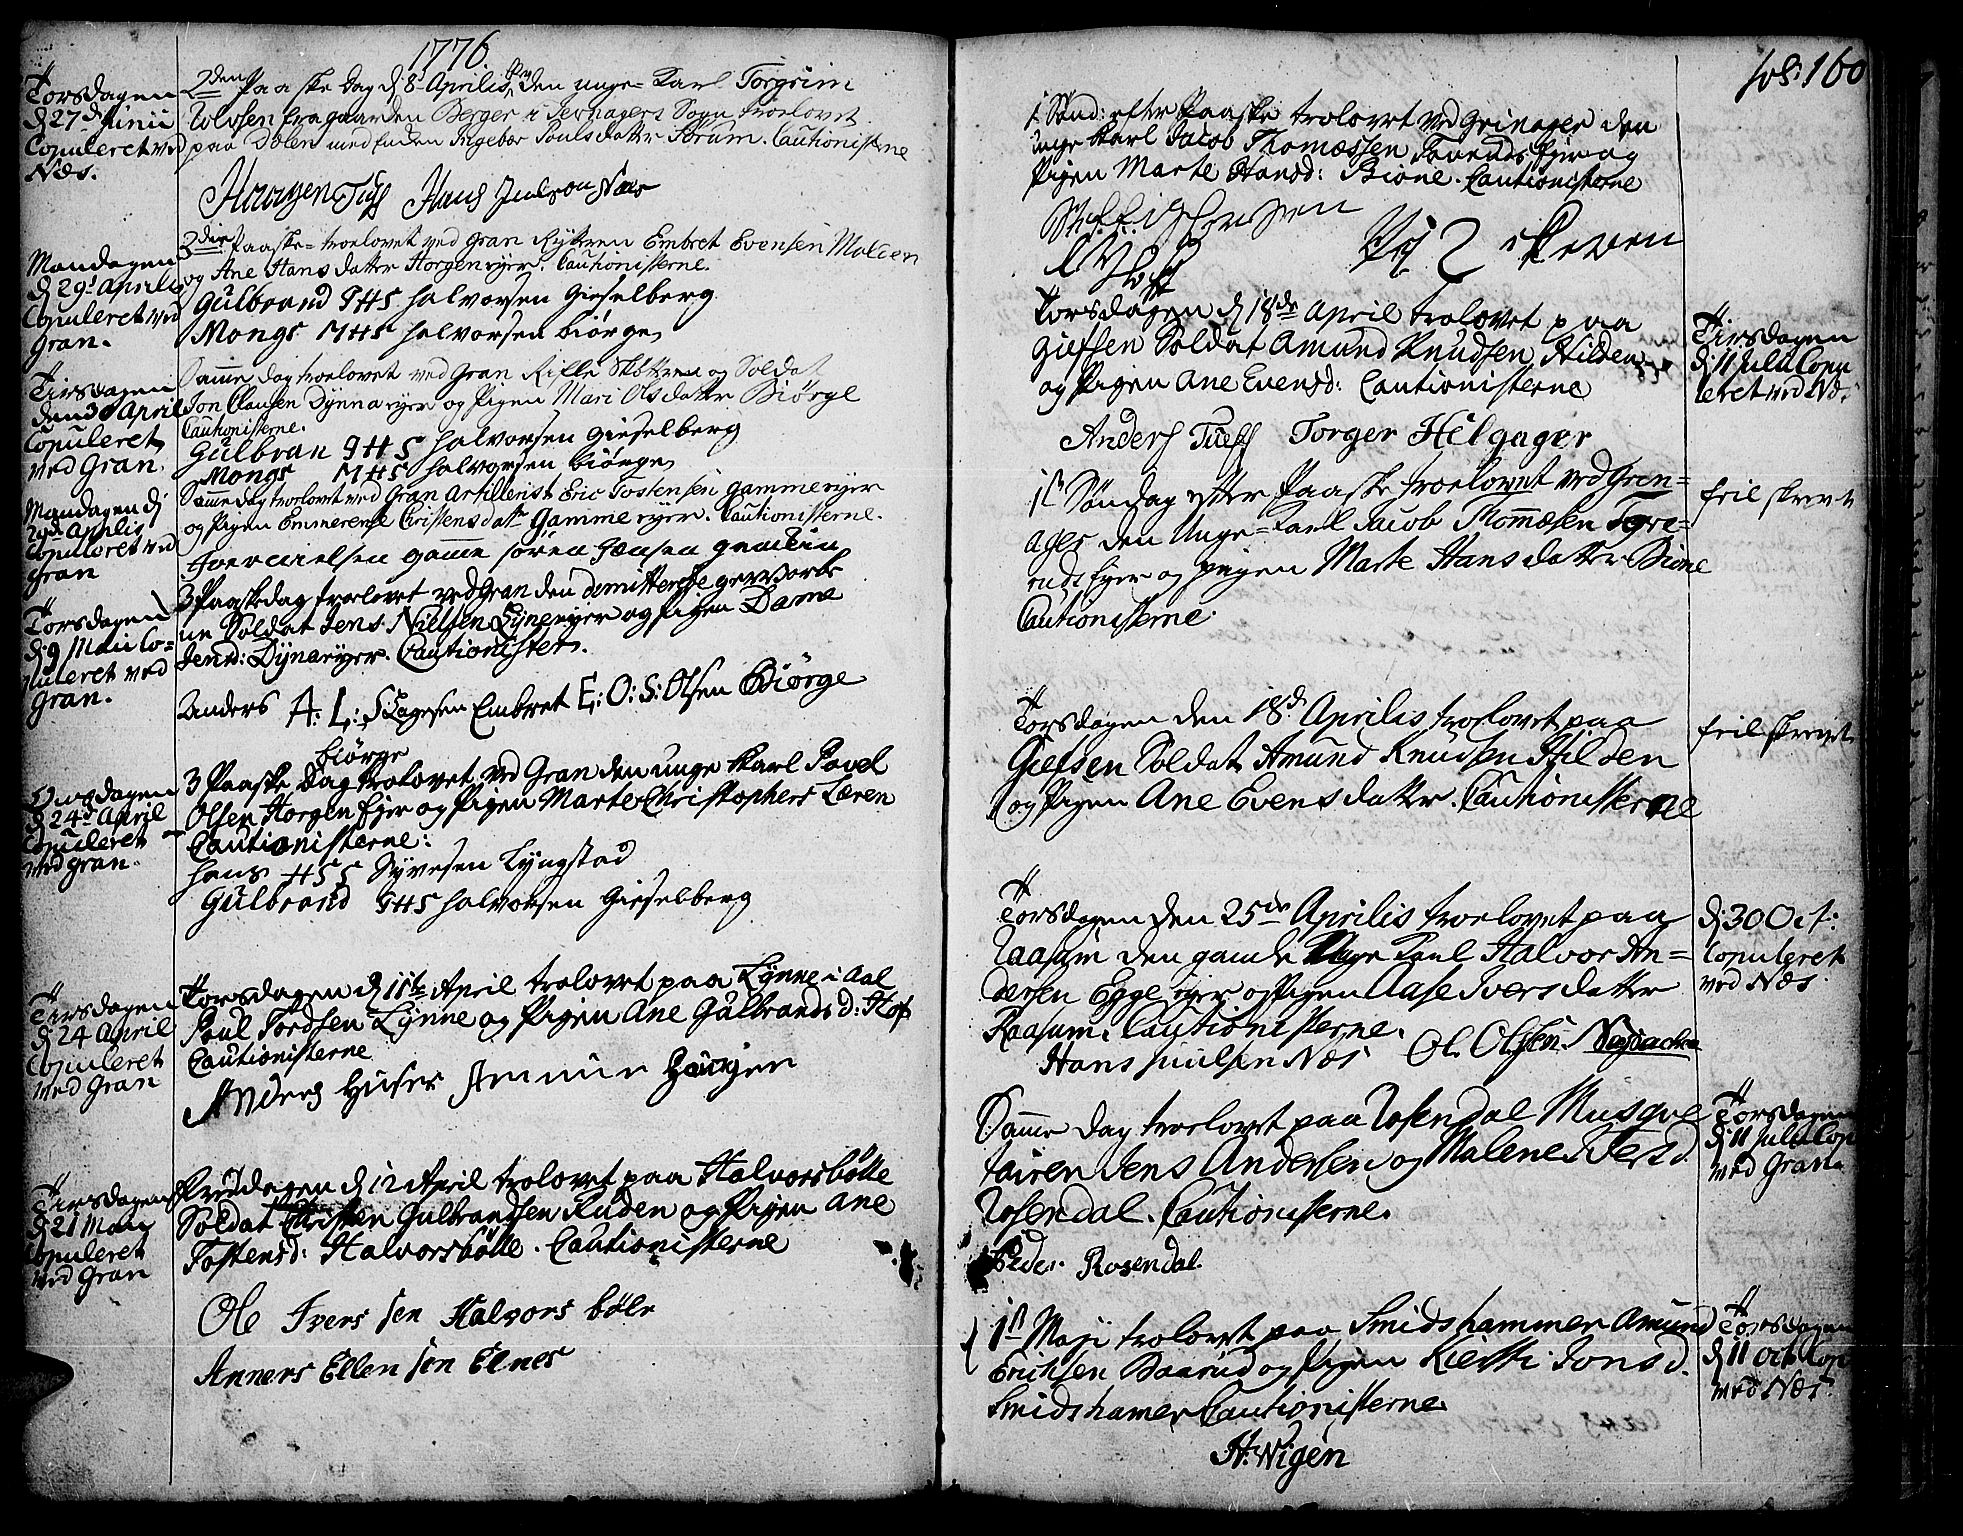 1776.
Torsdagen
d 27de Junii
Copuleret ved
Næs.
2den Paaske Dag d 8 Aprilis den unge Karl Torgrim
fra gaarden Berger i Jevnagers Sogn troelovet
paa Dælen med Enken Ingebor Poulsdatter Sørum. Cautionisterne
Hans Juelson Næs
Mandagen
d 29de Aprilis
Copuleret ved
Gran.
2den Paaske- troelovet ved Gran Rytteren Embret Evensen Molden
og Ane Hansdatter Horgen eyer. Cautionisterne.
Gulbrand GHS Halvorsen Gieselberg
Mongs MHS Halvorsen Biørge
Tirsdagen
den 30 April
Copuleret
ved Gran.
Samme dag troelovet ved Gran Rifle Skøtteren og Soldat
Jon Clausen Dynna eyer og Pigen Mari Olsdatter Biørge
Cautionisterne.
Gulbran GHS Halvorsen Gieselberg
Mongs MHS Halvorsen Biørge
Mandagen d
29de Aprilis
Copuleret ved
Gran
Samme dag troelovet ved Gran Artillerist Eric Tostensen Gamme eyer
og Pigen Emmerense Christensdatter Gamme eyer. Cautionisterne.
Iver Nielsen Gamme Søren Hansen
Torsdagen
d 9 Maii Co-
puleret ved
Gran.
3 Paaskedag troelovet ved Gran den demitterede gevorbe
ne Soldat Jens Nielsen Dyne eyer og Pigen Barne
Jensd: Dyna eyer. Cautionister.
Anders A: L: S Lagesen Embret E: O: S: Olsen Biørge
Biørge
Onsdagen
d 24de April
Copuleret
ved Gran.
3 Paaske Dag trolovet ved Gran den unge Karl Povel
Olsen Horgen Ejer og Pigen Marte Christophers Læren
Cautionisterne:
Hans HSS Syvesen Lyngstad
Gulbrand GHS Halvorsen Gieselberg
Tirsdagen
d 24 April
Copuleret
ved Gran
Torsdagen d 11te April trolovet paa Lynne i Aal
Poul Tordsen Lynne og Pigen Ane Gulbrandsd: Hof
Cautionisterne
Anders Huser
Tirsdagen
d 21 Maii
Copuleret
ved Gran
Fredagen d 12 April trolovet paa Halvorsbølle
Soldat Christen Gulbrandsen Ruden og Pigen Ane
Tostensd: Halvorsbølle. Cautionisterne
Ole Iversen Halvorsbøle
Anners Ellensen Elnes
fol: 160
1 Sønd: efter Paaske trolovet ved Grinager den
unge Karl Jacob Thomæssen Ejer og
Pigen Marte Hansd: Bione. Cautionisterne
Torsdagen d 18de April trolovet paa
Giefsen Soldat Amund Knudsen Hilden
og Pigen Ane Evensd: Cautionisterne
Anders Tuefs Torger Helgager
Tirsdagen
d 11 Julii Copu
leret ved Næs
1te Søndag efter Paaske troelovet ved Gren-
ager den Unge Karl Jacob Thommæsen Tegre-
ruds Ejer og pigen Marte Hansdatter Bione
Cautionisterne.
feil skrevet
Torsdagen den 18de Aprilis troelovet paa
Giefsen Soldat Amund Knudsen Hilden
og Pigen Ane Evensdatter. Cautionisterne
feil skrevet
Torsdagen den 25de Aprilis troelovet paa
Raasum den gamle Unge Karl Halvor An-
dersen Egge eyer og Pigen Aase Iversdatter
Raasum. Cautionisterne.
Hans Juulsen Næs Ol. Olsen
d 30 Oct:
Copuleret
ved Næs
Samme Dag troelovet paa Rosendal Musque
tairen Jens Andersen og Malene Iversd.
Rosendal. Cautionisterne.
Peder Rosendal.
Torsdagen
d 11 Julii Cop
ved Gran
1te Maji trolovet paa Smidshammer Amund
Erichsen Baarud og Pigen Kiersti Jonsd.
Smidshamer Cautionisterne
H: Wigen
Torsdagen
d 11 Oct Cop
ved Næs